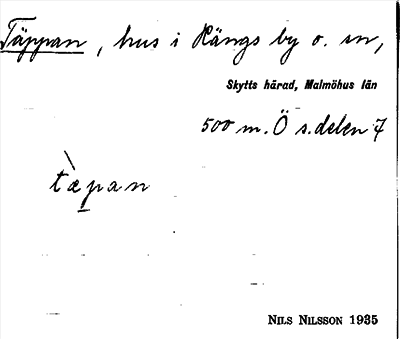 Täppan, hus i Hängs by o. sn,
Skytts härad, Malmöhus län
500 m. Ö s. delen 7
tæpan
NILS NILSSON 1935